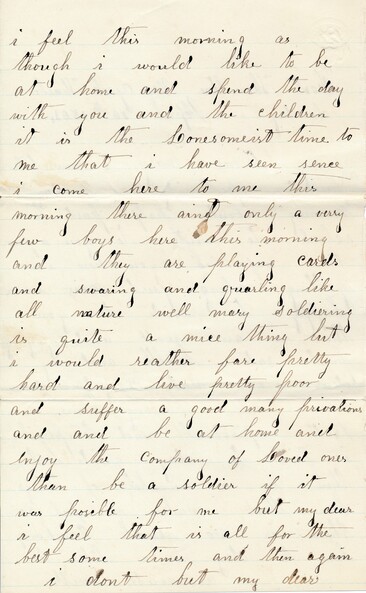 i feel this morning as
though i would like to be
at home and spend the day
with you and the children
it is the Lonesomeist time to
me that i have seen sence
i come here to me this
morning there aint only a verry
few boys here this morning
and they are playing cards
and swaring and quarling like
all nature well mary soldiering
is quite a nice thing but
i would reather fare pretty
hard and live pretty poor
and suffer a good many privations
and and be at home and
enjoy the company of Loved ones
than be a soldier if it
was posible for me but my dear
i feel that is all for the
best some times and then again
i dont but my dear